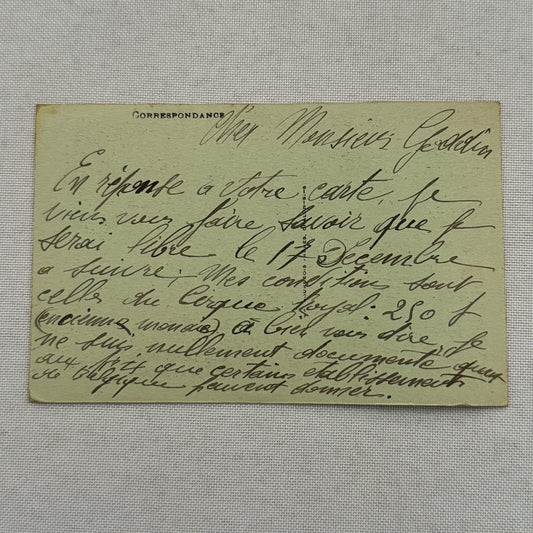 CORRESPONDANCE
Cher Monsieur Goddin
En réponse à votre carte, je
viens vous faire savoir que je
serai libre le 17 Décembre
à suivre; Mes conditions sont
celles du Cirque Royal. 250 f
(ancienne monnaie) à bien vous dire, je
ne suis nullement documenté quant
aux prix que certains établissements
de Belgique peuvent donner.